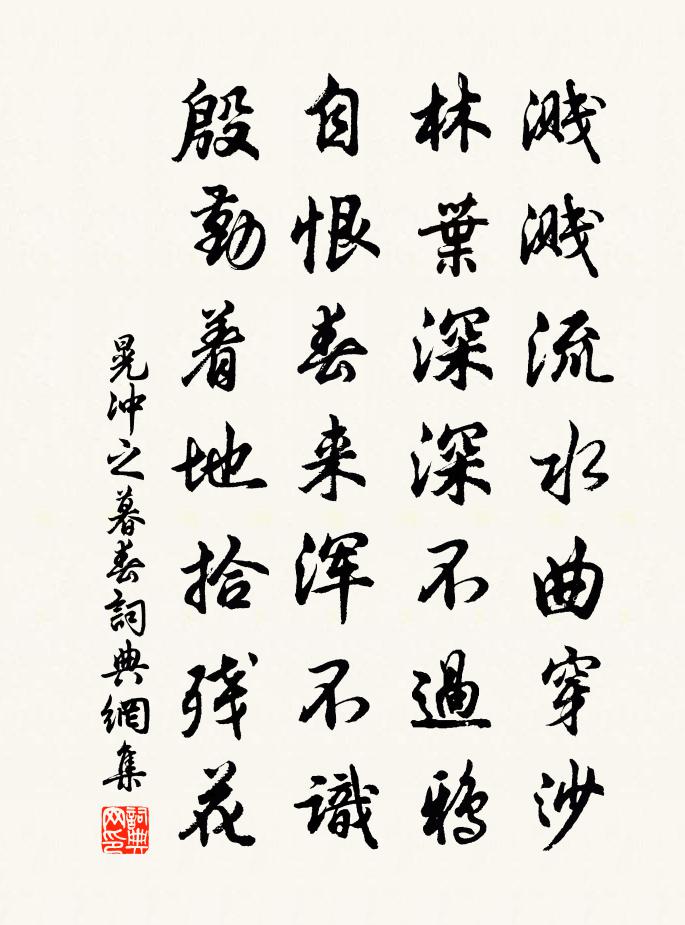 溅溅流水曲穿沙
林葉深深不過鴉
自恨春来浑不識
殷勤着地拾残花
晁冲之暮春詞典網集
詞典网印